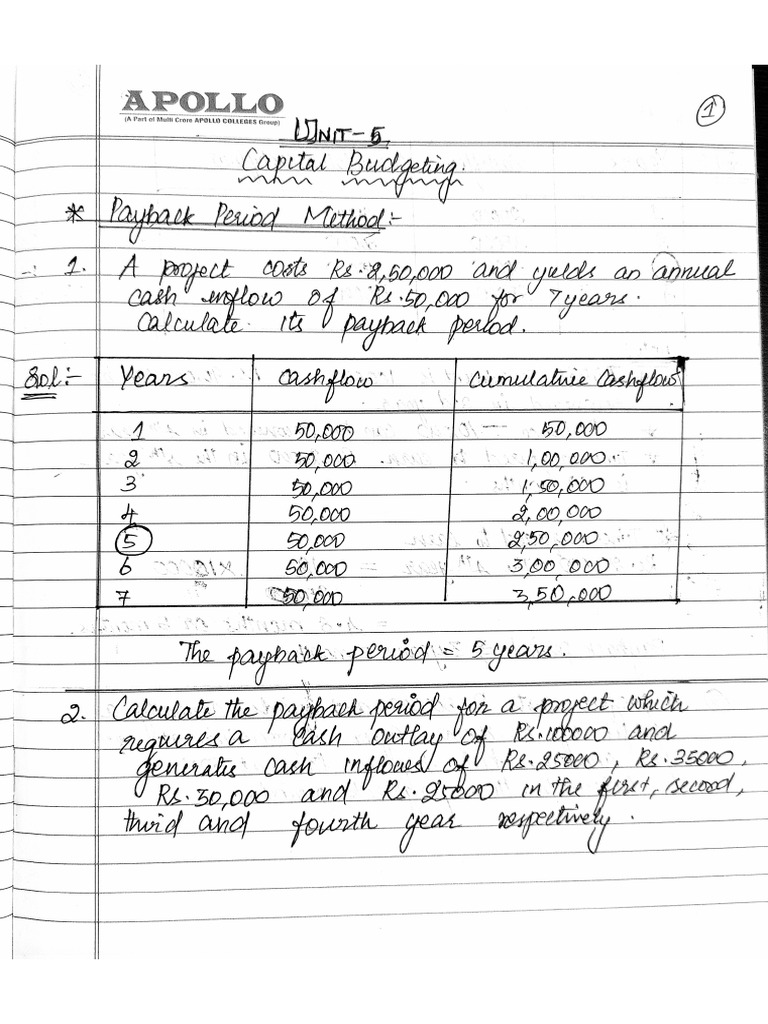 APOLLO
(A Part of Multi Crore APOLLO COLLEGES Group)
1
UNIT-5
Capital Budgeting.
* Payback Period Method:-
1. A project costs Rs.2,50,000 and yields an annual
cash inflow of Rs.50,000 for 7 years.
Calculate its payback period.
Sol:- Years Cashflow Cumulative Cashflow
1 50,000 50,000
2 50,000 1,00,000
3 50,000 1,50,000
4 50,000 2,00,000
5 50,000 2,50,000
6 50,000 3,00,000
7 50,000 3,50,000
The payback period = 5 years.
2. Calculate the payback period for a project which
requires a cash outlay of Rs.100000 and
generates cash inflows of Rs.25000, Rs.35000,
Rs.30,000 and Rs.25000 in the first, second,
third and fourth year respectively.